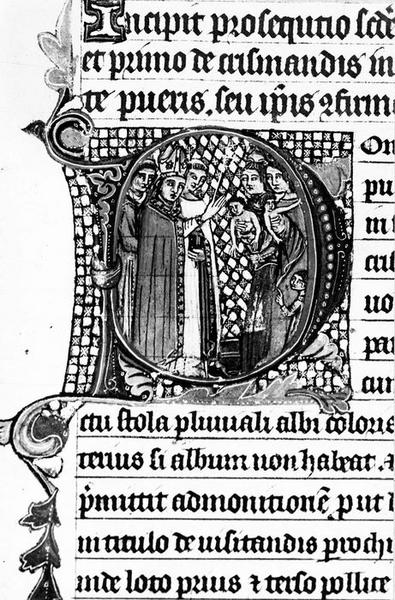 Incipit prosequtio scde
et primo de crismandis in
te pueris, seu ipis 9firm
On
pu
in
cris
uo
par
cun
ctu stola pluuiali albi coloris
terius si album non habeat
pmittit admonitionē put
in titulo de uisitandis prochi
inde loto prius ⁊ terso pollice